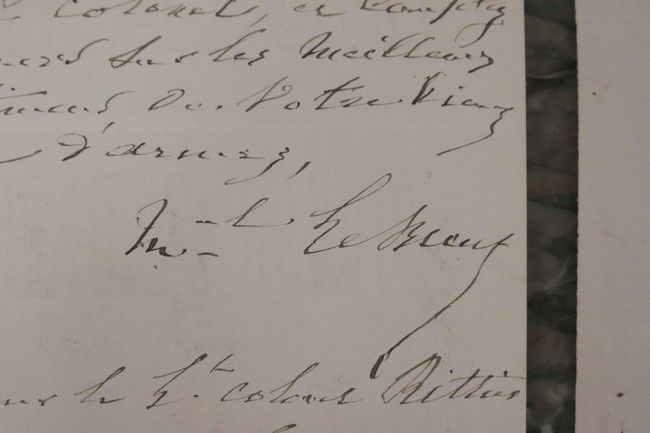 Colonel, et Comptez
sur les Meilleurs
de Votre Vieux
d'armes,
M.al Le Bœuf
le Lt colonel